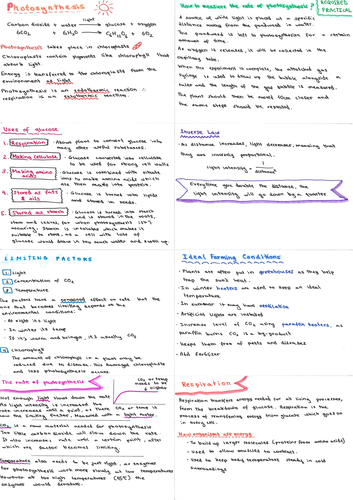 Photosynthesis
light
Carbon dioxide + water → glucose + oxygen
6CO₂ 6H₂O C₆H₁₂O₆ 6O₂
Photosynthesis takes place in chloroplasts
Chloroplasts contain pigments like chlorophyll that
absorb light
Energy is transferred to the chloroplasts from the
environment as light
Photosynthesis is an endothermic reaction
respiration is an exothermic reaction
Uses of glucose
1. Respiration
glucose into
many other useful substances.
2. Making cellulose - Glucose converted into cellulose
to be used for strong cell walls
3. Making amino
acids
Glucose is combined with nitrate
ions to make amino acids which
are then made into protein.
4. Stored as fats
& oils
Glucose is turned into lipids
and stored in seeds.
5. Stored as starch - Glucose is turned into starch
and is stored in the roots,
stem and leaves, for when photosynthesis isn't
occurring. Starch is insoluble which makes it
suitable to store, as a cell with lots of
glucose would draw in too much water and swell up.
LIMITING FACTORS
1. Light
2. Concentration of CO₂
3. Temperature
The factors have a combined effect on rate but the
one that becomes limiting depends on the
environmental conditions:
At night it's light
In winter its temp
If it's warm and bright, it's usually CO₂
4. Chlorophyll
The amount of chlorophyll in a plant may be
reduced due to disease. This damages chloroplasts
and less photosynthesis occurs.
The rate of photosynthesis
CO₂ or temp
needs to be
higher
Not enough light slows down the rate
As light intensity is increased the
rate increases until a point, as there CO₂ or temp is
now the limiting factor, meaning
CO₂ is a raw material needed for photosynthesis
Too little of it will slow down the rate
It also increases rate until a certain point, after
which any factor becomes limiting.
Temperature also needs to be just right, as enzymes
for photosynthesis work more slowly at low temperatures
However at too high temperatures (45°C) the
enzymes would denature.
How to measure the rate of photosynthesis?
REQUIRED
PRACTICAL
A source of white light is placed at a specific
distance away from the pondweed in water.
The pondweed is left to photosynthesise for a certain
amount of time.
As oxygen is released, it will be collected in the
capillary tube.
When the experiment is complete, the attached gas
syringe is used to draw up the bubble alongside a
ruler and the length of the gas bubble is measured.
The plant should then be moved closer
and
the above steps should be repeated.
Inverse Law
As distance increases, light decreases, meaning that
they are inversely proportional.
light intensity = 1/distance²
Everytime you double the distance, the
light intensity will go down by a quarter
Ideal Farming Conditions
Plants are often put in greenhouses as they help
trap the sun's heat.
In winter heaters are used to keep an ideal
temperature
In summer it may have ventilation
Artificial lights are included
Increase level of CO₂ using paraffin heaters, as
paraffin burns CO₂ is a by-product
Keeps them free of pests and diseases
Add fertiliser
Respiration
Respiration transfers energy needed for all living processes,
from the breakdown of glucose. Respiration is the
process of transferring energy from glucose which goes on
in every cell.
How organisms use energy
To build up larger molecules (proteins from amino acids)
Used to allow muscles to contract.
Used to keep body temperature steady in cold
surroundings